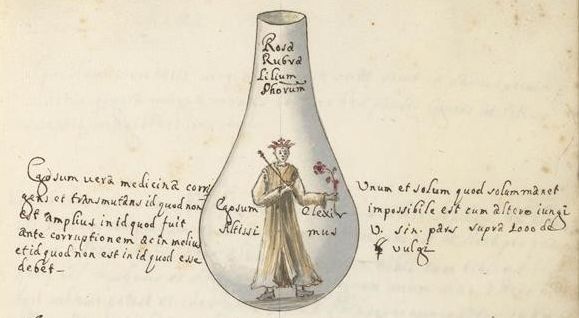 Rosa
Rubra
Lilium
Phorum
Ego sum vera medicina corri
gens et transmutans id quod non
est amplius in id quod fuit
ante corruptionem ac in melius
et id quod non est in id quod esse
debet
Ego sum Elexir
Altissi mus
Unum et solum quod solum manet
impossibile est cum altero iungi
V. sin. pars supra 1000 de
vulg